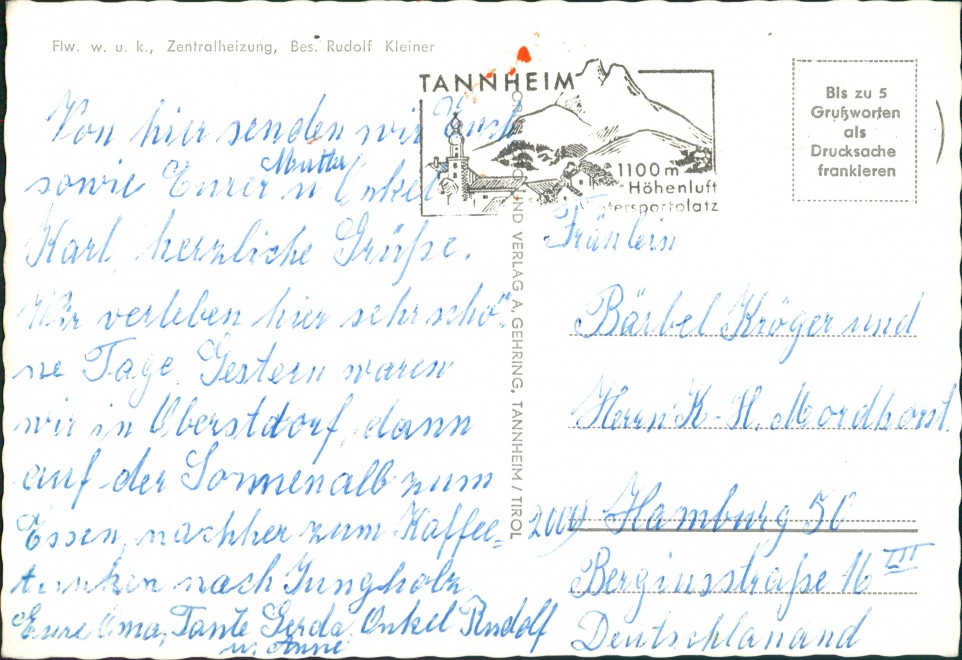 Flw. w. u. k., Zentralheizung, Bes. Rudolf Kleiner
TANNHEIM
1100 m
Höhenluft
tersportplatz
Bis zu 5
Grußworten
als
Drucksache
frankieren
Von hier senden wir Euch
sowie Eurer Mutter u Onkel
Karl, herzliche Grüße.
Wir verleben hier sehr schö-
ne Tage. Gestern waren
wir in Oberstdorf, dann
auf der Sonnenalb zum
Essen, nachher zum Kaffee=
trinken nach Jungholz
Eure Oma, Tante Gerda, Onkel Rudolf
u. Anne
UND VERLAG A, GEHRING, TANNHEIM / TIROL
Fräulein
Bärbel Kröger und
Herrn K-H. Mordhorst.
2000 Hamburg 50
Bergiusstraße 16 III
Deutschlanand